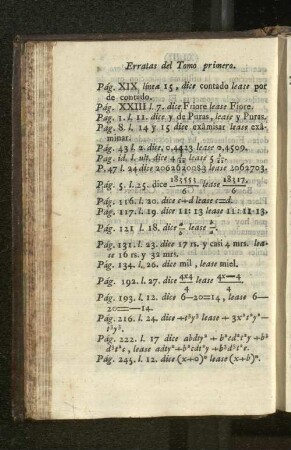 Erratas del Tomo primero.
Pág. XIX linea 15, dice contado lease por
de contado.
Pag. XXIII l. 7. dice Friore lease Fjore.
Pag. 1. l. 11. dice y de Puras, lease y Puras.
Pag. 8. l. 14 y 15 dice exâmisar lease exâ-
minar.
Pag. 43 l. 2. dice 0,4423 lease 0,4509.
Pag. id. l. ult. dice 4 lease 5
P. 47 l. 24 dice 2062620083 lease 2062703.
Pág. 5. l. 25. dice 183551/6 lease 18317/6.
Pág. 116. l. 20. dice c+d lease c=d.
Pág. 117. l. 19 dice 11: 13 lease 11: 11.13.
Pág. 121 l. 18. dice lease
Pág. 131. l. 23. dice 17 rs. y casi 4 mrs. lea-
se 16 rs. y 32 mrs.
Pág. 134. l. 26. dice mil, lease miel.
Pág. 192. l. 27. dice 4x4/4 lease 4x—4/4
Pág. 193. l. 12. dice 6—20=14, lease 6—
20=—14.
Pág. 216. l. 24. dice +t²y³ lease + 3x²t²y²—
t³y³.
Pág. 222. l. 17 dice
lease
Pág. 245. l. 12. dice (x+0)ⁿ lease (x+b)ⁿ.